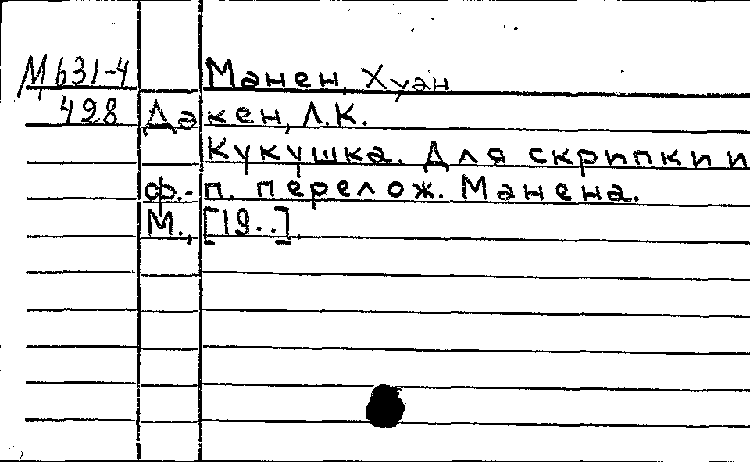 М631-4 Манен, Хуан
498 Дакен, Л.К.
Кукушка. Для скрипки и
ф.-п. перелож. Манена.
М., [19..].